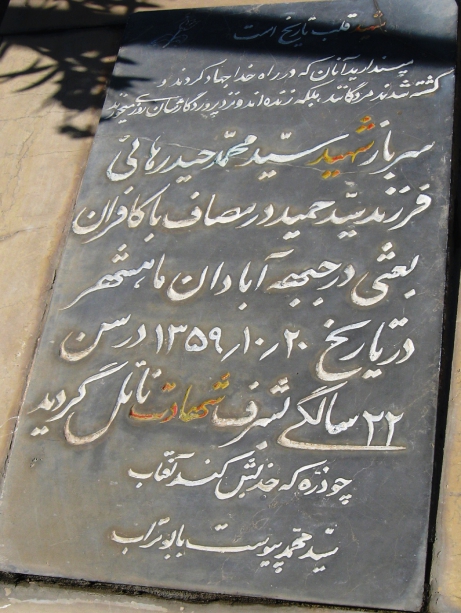 شهید قلب تاریخ است
مپندارید آنان که در راه خدا جهاد کردند و
کشته شدند مردگانند بلکه زنده اند و نزد پروردگارشان روزی میخورند
سرباز شهید سید محمد حیدر هائی
فرزند سید حمید در مصاف با کافران
بعثی در جبهه آبادان ماهشهر
در تاریخ ۱۳۵۹/۱۰/۲۰ در سن
۲۲ سالگی بشرف شهادت نائل گردید
چو ذره که جذبش کند آفتاب
سید محمد پیوست با بوتراب